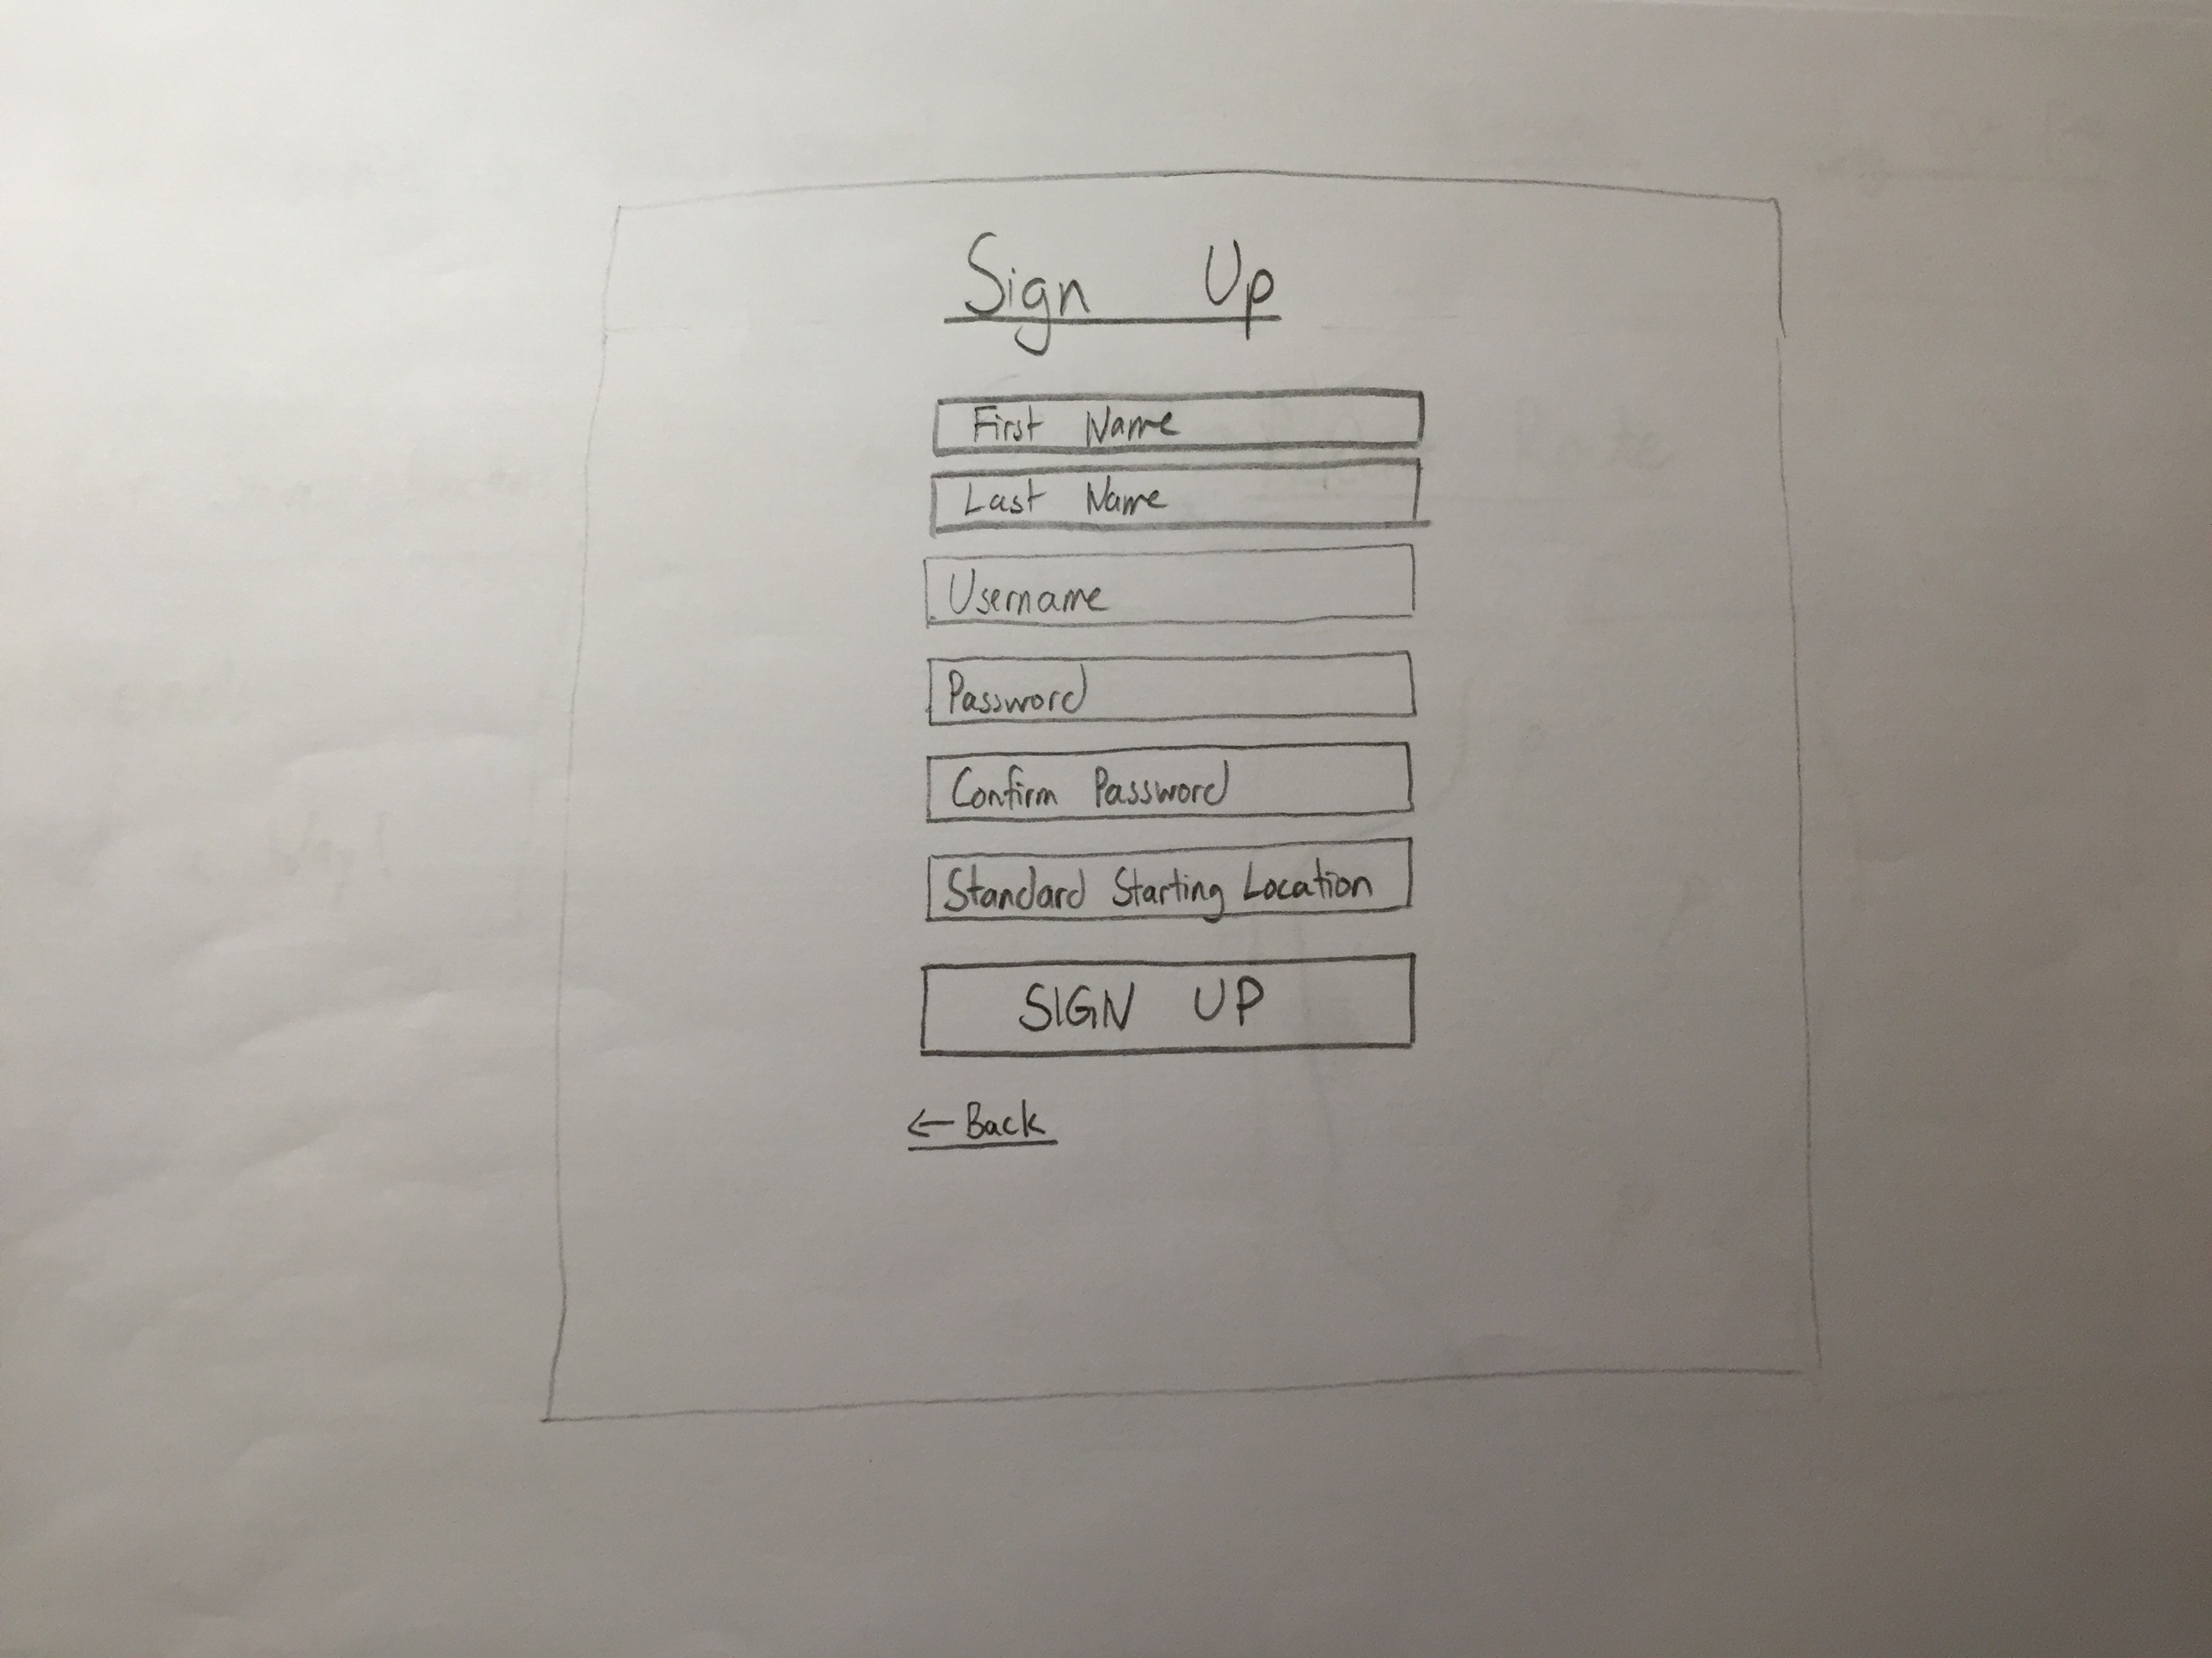 Sign Up
First Name
Last Name
Username
Password
Confirm Password
Standard Starting Location
SIGN UP
← Back